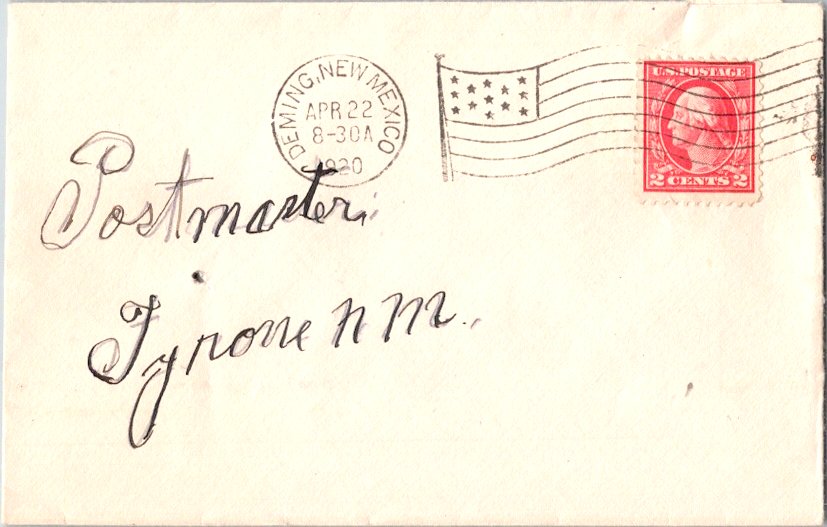 DEMING, NEW MEXICO
APR 22
8-30A
1920
U.S. POSTAGE
2 CENTS 2
Postmaster,
Tyrone N M.